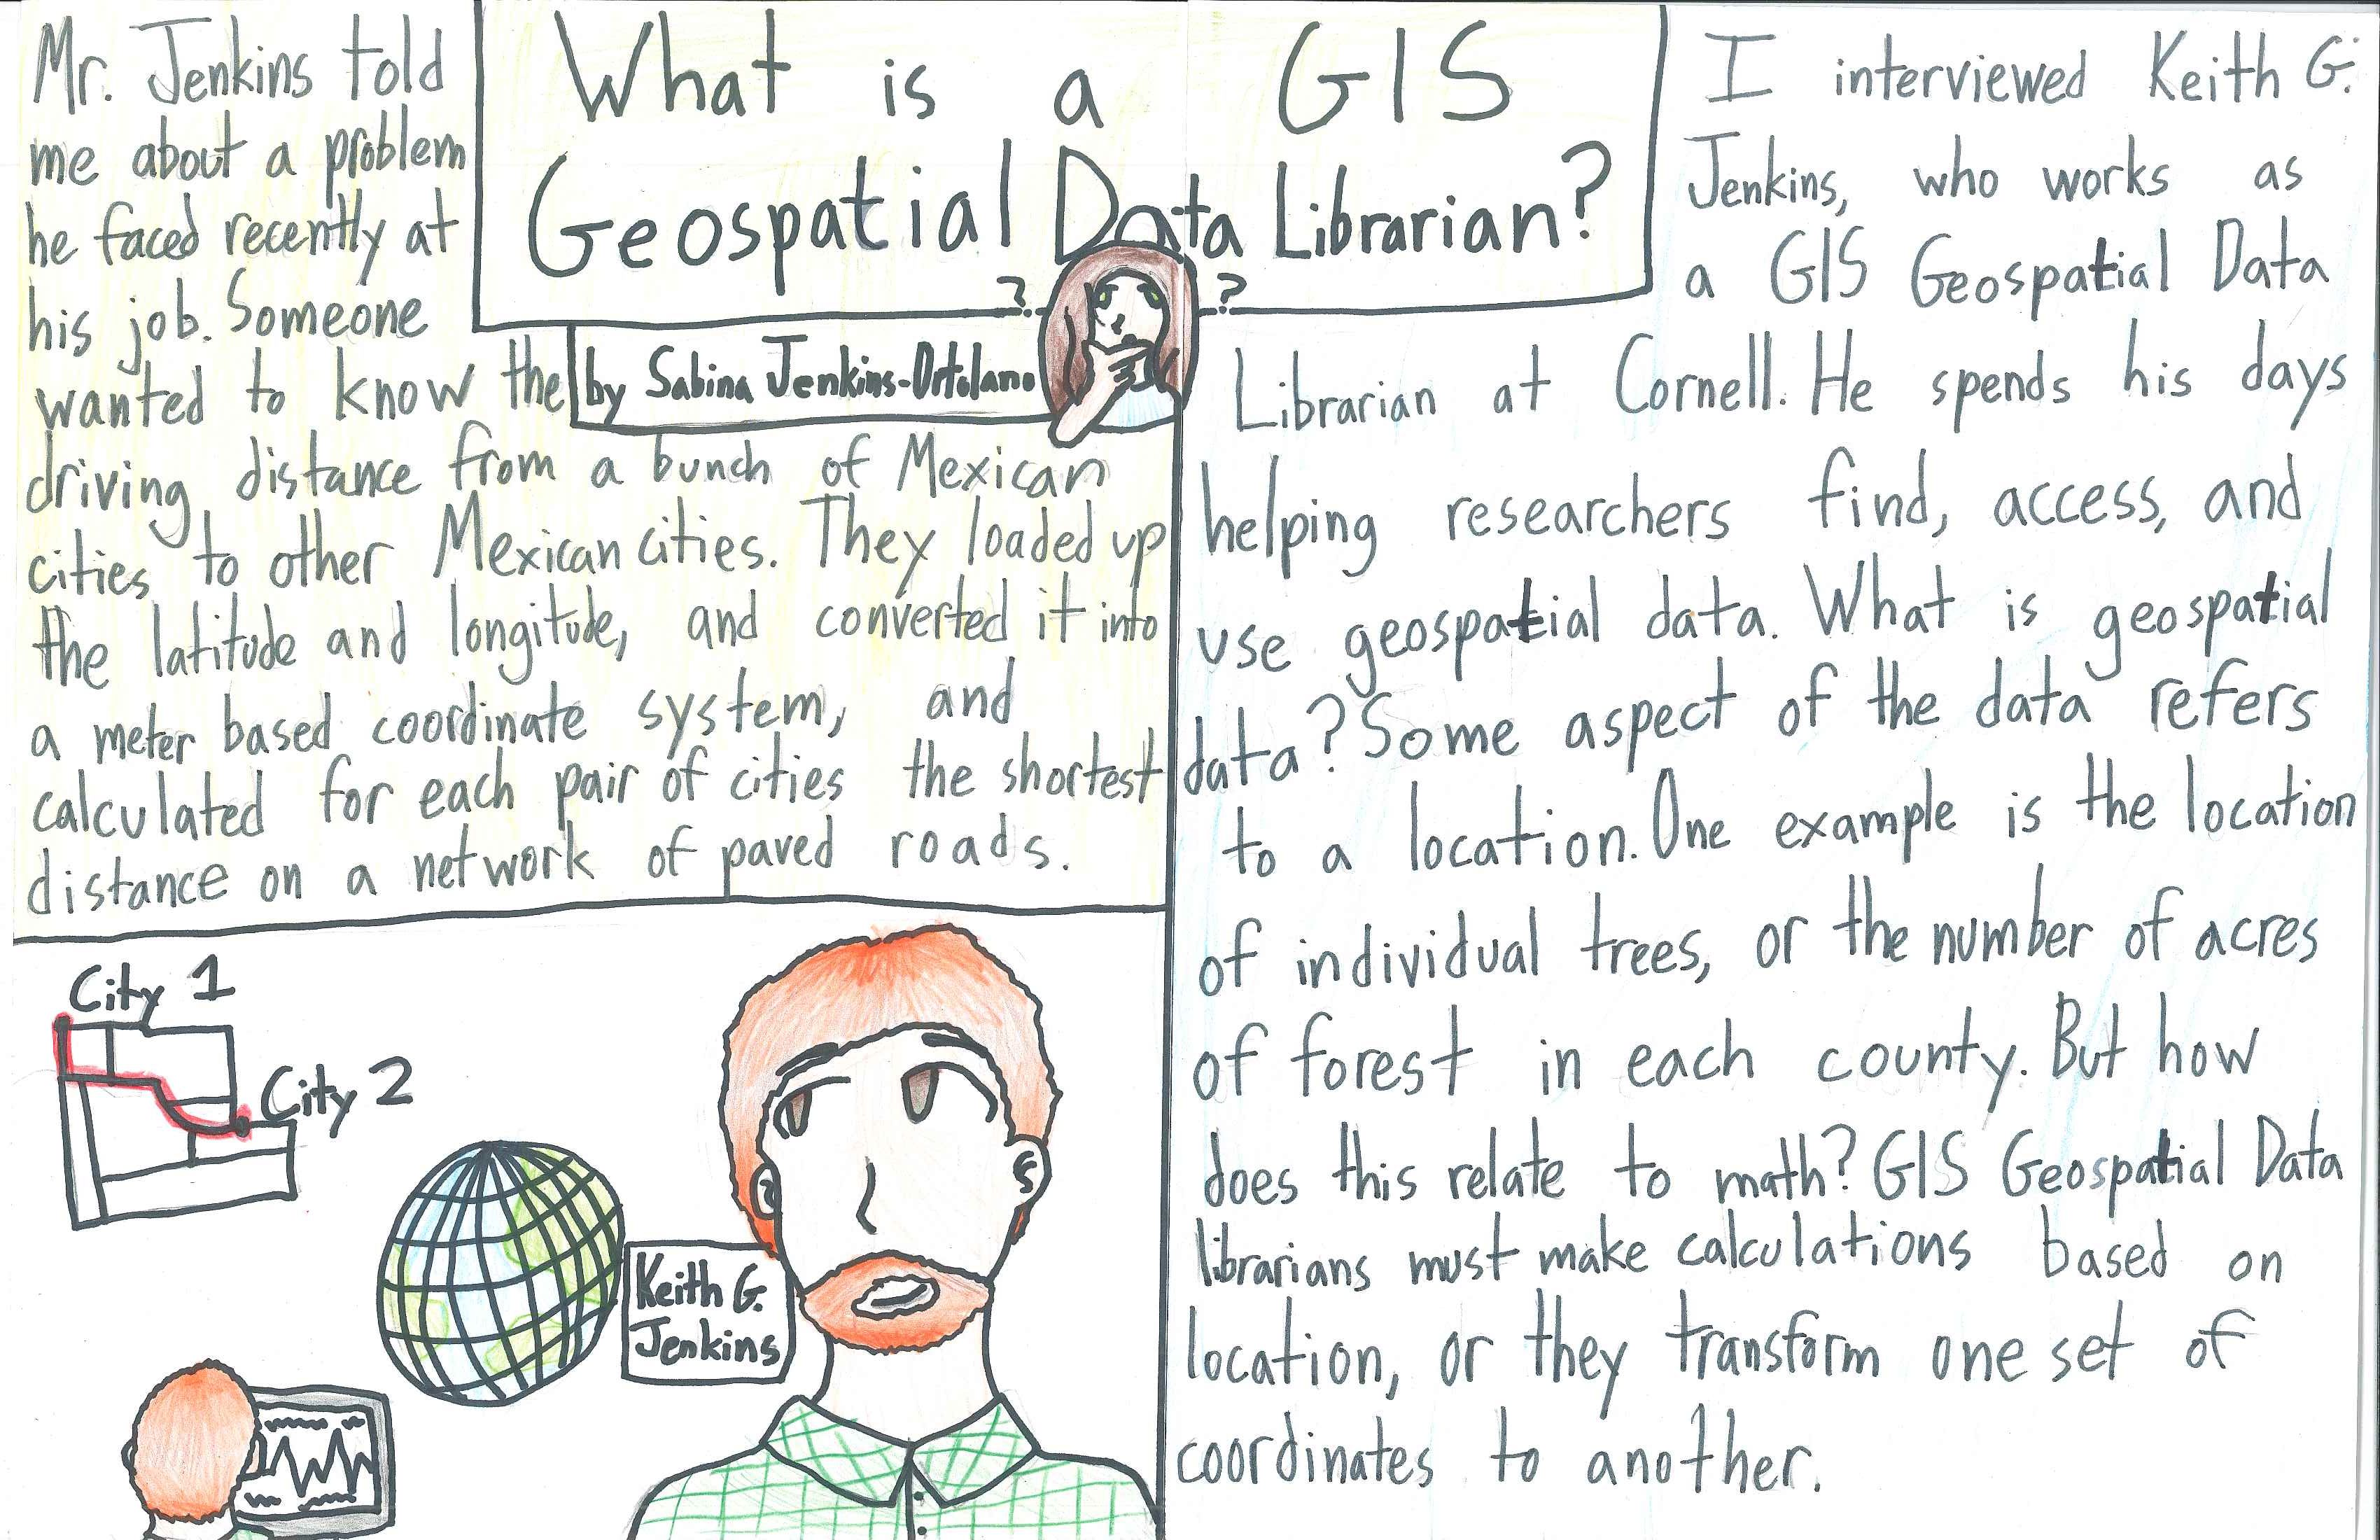 What is a GIS
Geospatial Data Librarian?
? ?
by Sabina Jenkins-Ortolano
Mr. Jenkins told
me about a problem
he faced recently at
his job. Someone
wanted to know the
driving distance from a bunch of Mexican
cities to other Mexican cities. They loaded up
the latitude and longitude, and converted it into
a meter based coordinate system, and
calculated for each pair of cities the shortest
distance on a network of paved roads.
City 1
City 2
Keith G.
Jenkins
I interviewed Keith G.
Jenkins, who works as
a GIS Geospatial Data
Librarian at Cornell. He spends his days
helping researchers find, access, and
use geospatial data. What is geospatial
data? Some aspect of the data refers
to a location. One example is the location
of individual trees, or the number of acres
of forest in each county. But how
does this relate to math? GIS Geospatial Data
librarians must make calculations based on
location, or they transform one set of
coordinates to another.